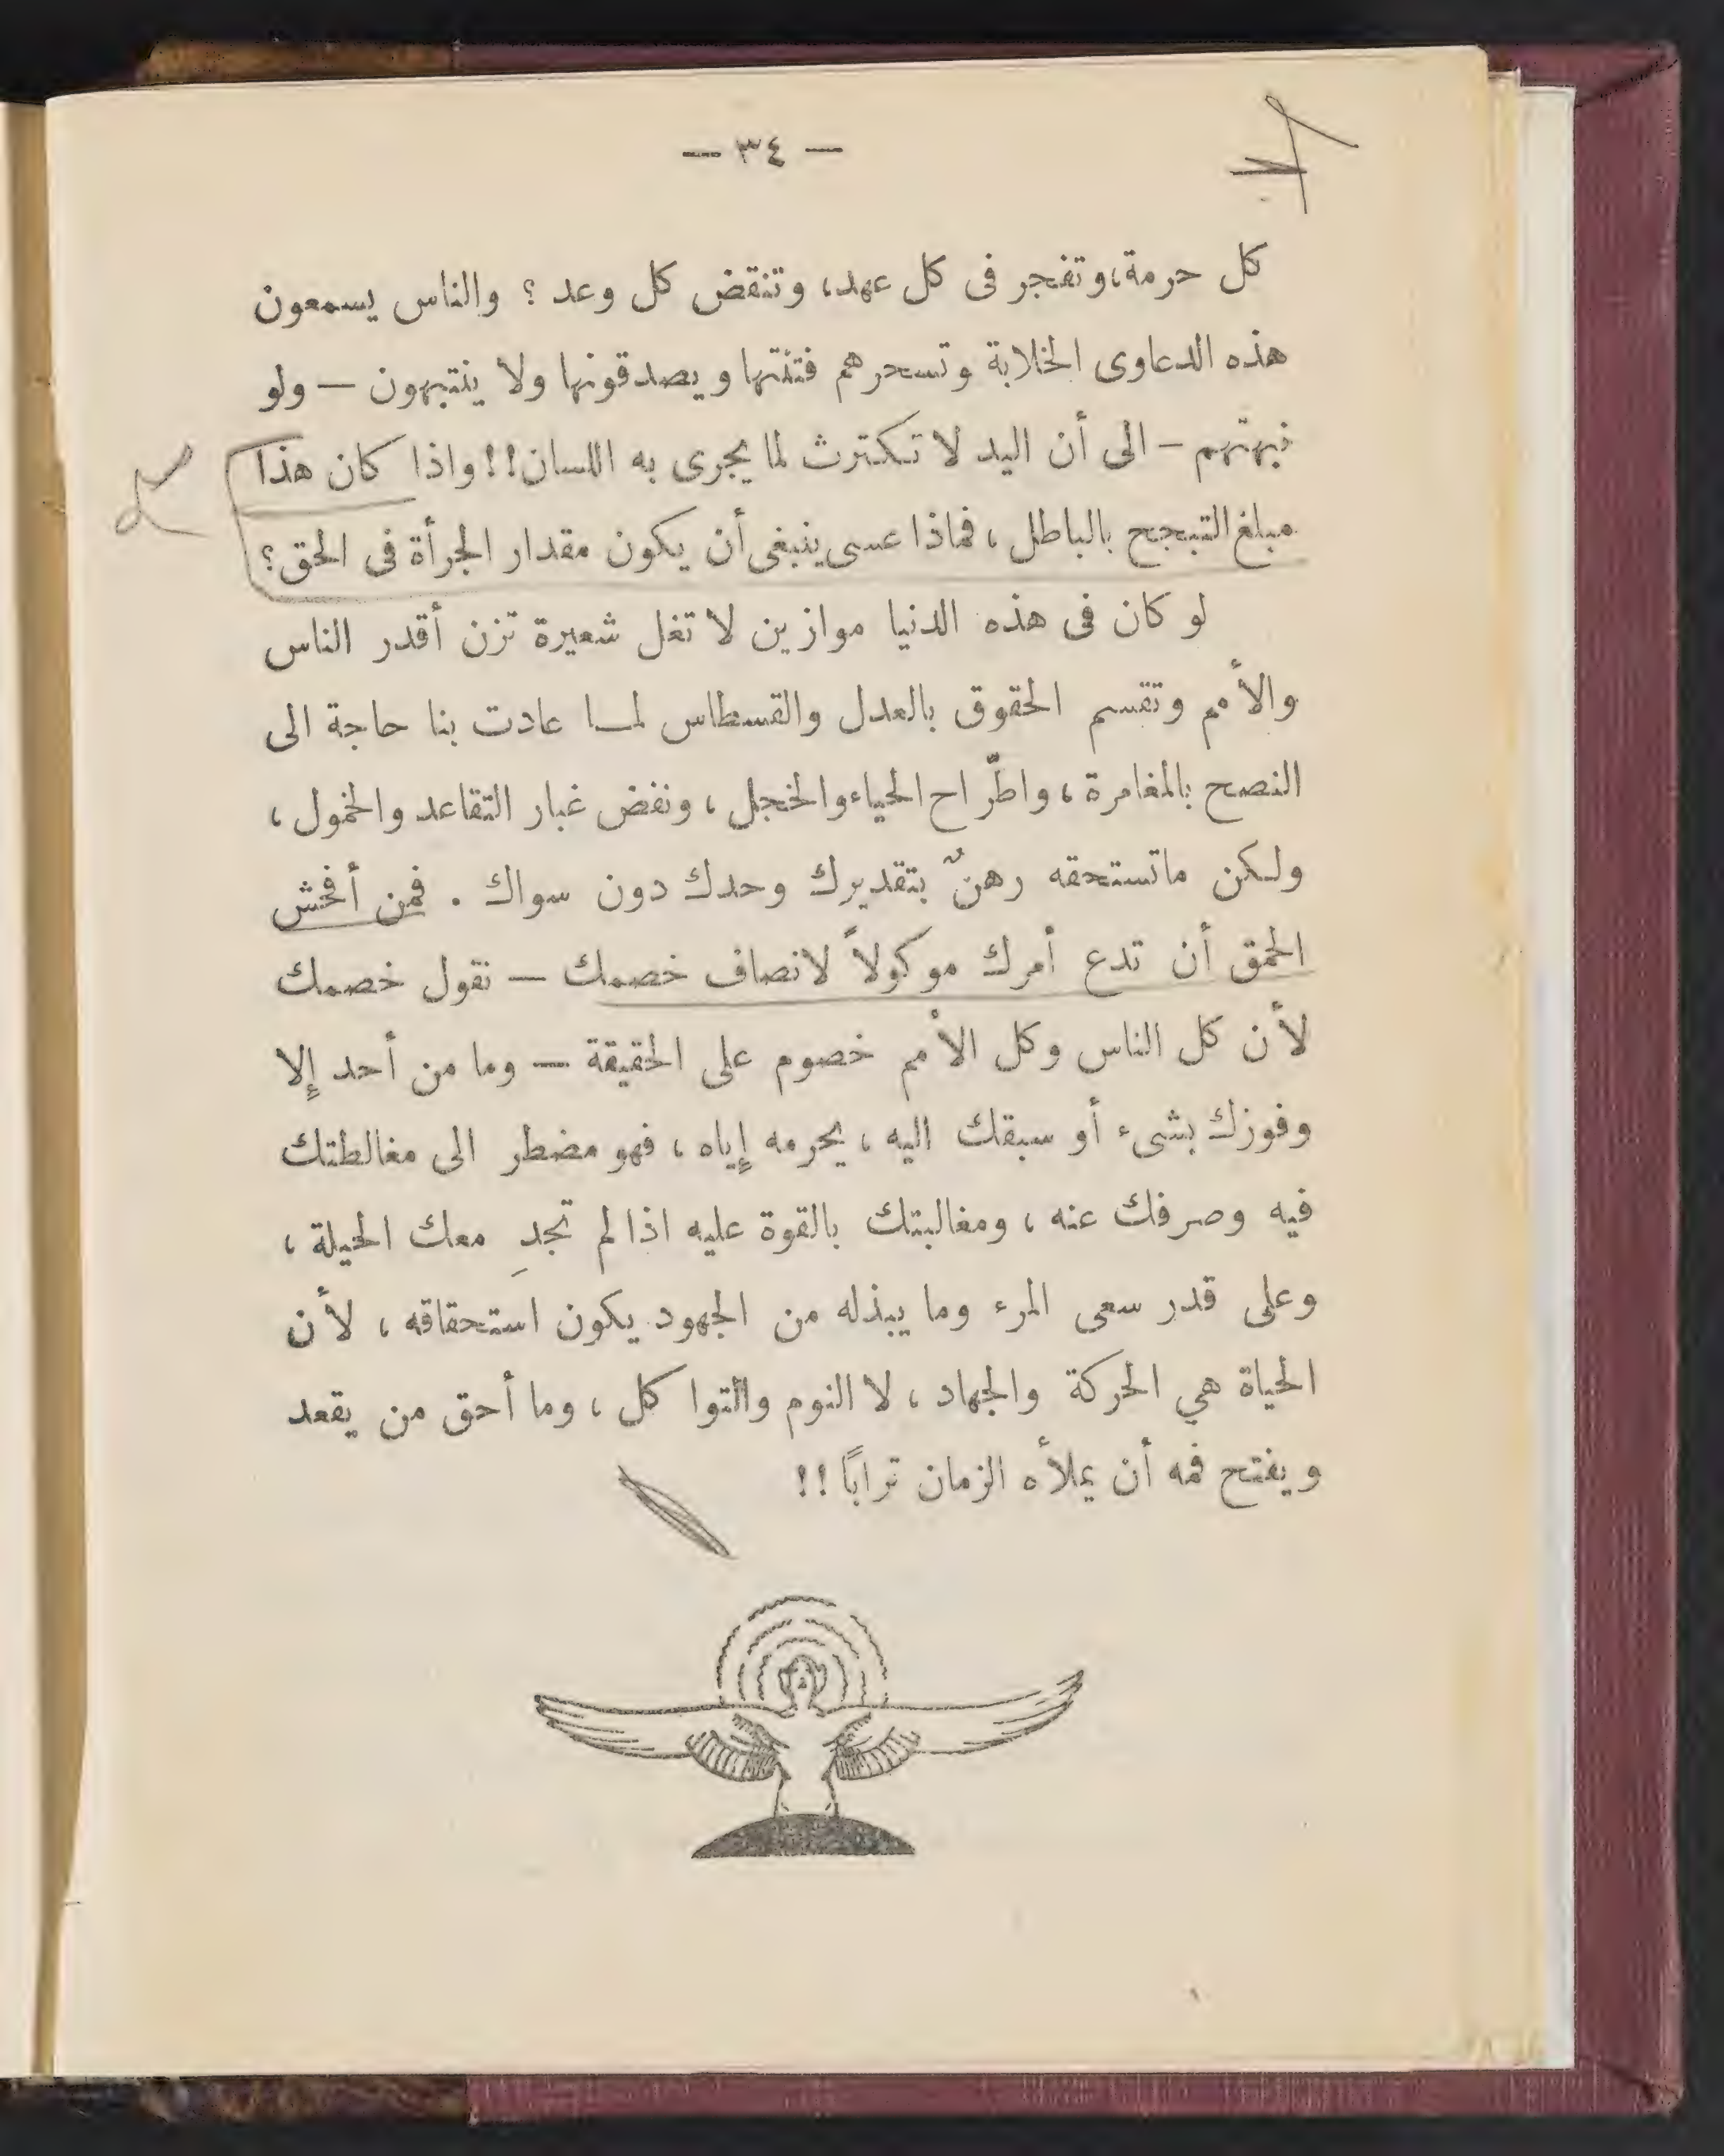 — ٣٤ —
كل حرمة، وتفجر فى كل عهد، وتنقض كل وعد ؟ والناس يسمعون
هذه الدعاوى الخلابة وتسحرهم فتنتها ويصدقونها ولا ينتبهون — ولو
نبهتهم — الى أن اليد لا تكترث لما يجرى به اللسان!! واذا كان هذا
مبلغ التبجح بالباطل ، فماذا عسى ينبغى أن يكون مقدار الجرأة فى الحق ؟
لو كان فى هذه الدنيا موازين لا تغل شعيرة تزن أقدر الناس
والأمم وتقسم الحقوق بالعدل والقسطاس لمـا عادت بنا حاجة الى
النصح بالمغامرة ، واطّراح الحياء والخجل ، ونفض غبار التقاعد والخمول ،
ولكن ماتستحقه رهنٌ بتقديرك وحدك دون سواك . فمن أفحش
الحمق أن تدع أمرك موكولاً لانصاف خصمك — نقول خصمك
لأن كل الناس وكل الأمم خصوم على الحقيقة — وما من أحد إلا
وفوزك بشىء أو سبقك اليه ، يحرمه إياه ، فهو مضطر الى مغالطتك
فيه وصرفك عنه ، ومغالبتك بالقوة عليه اذا لم تجدِ معك الحيلة ،
وعلى قدر سعى المرء وما يبذله من الجهود يكون استحقاقه ، لأن
الحياة هي الحركة والجهاد ، لا النوم والتواكل ، وما أحق من يقعد
ويفتح فمه أن يملأه الزمان تراباً !!